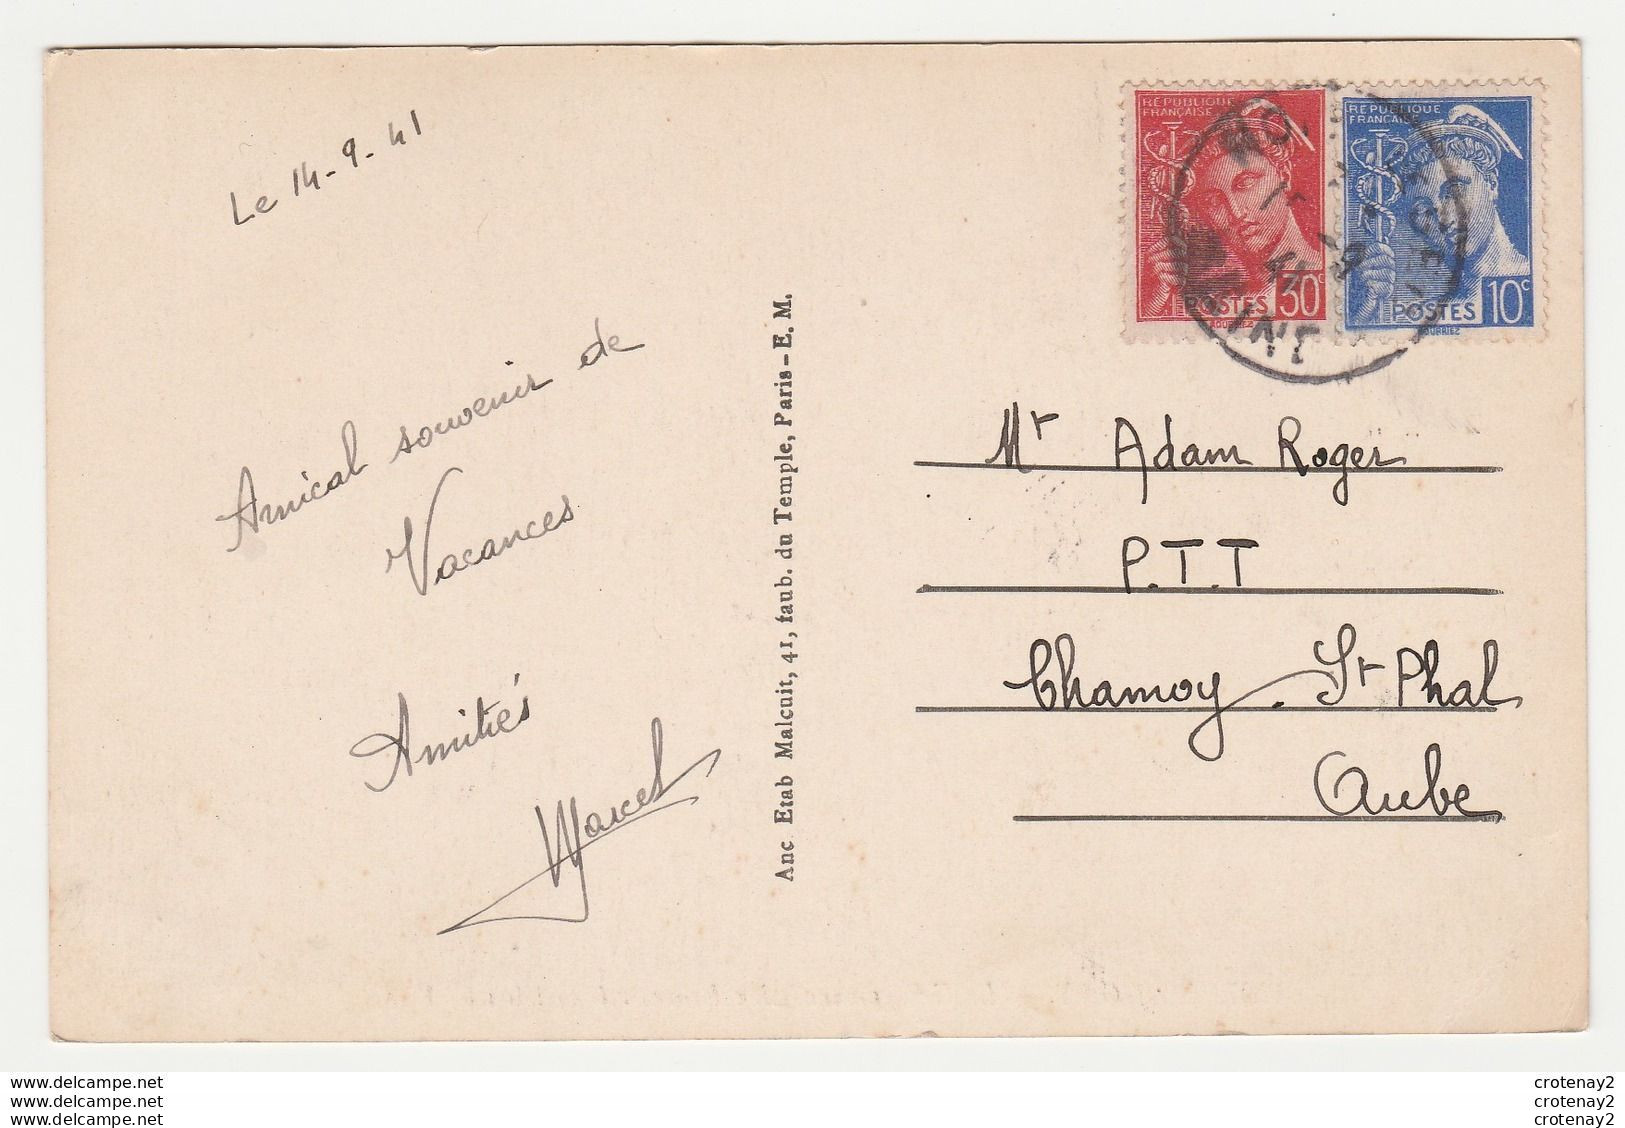 Le 14-9-41
Amical souvenir de
Vacances
Amitiés
Marcel
Anc Etab Malcuit, 41, faub. du Temple, Paris - E. M.
RÉPUBLIQUE
FRANÇAISE
POSTES 30c
RÉPUBLIQUE
FRANÇAISE
POSTES 10c
Mr Adam Roger
P.T.T
Chamoy. St Phal
Aube
www.delcampe.net
www.delcampe.net
www.delcampe.net
crotenay2
crotenay2
crotenay2